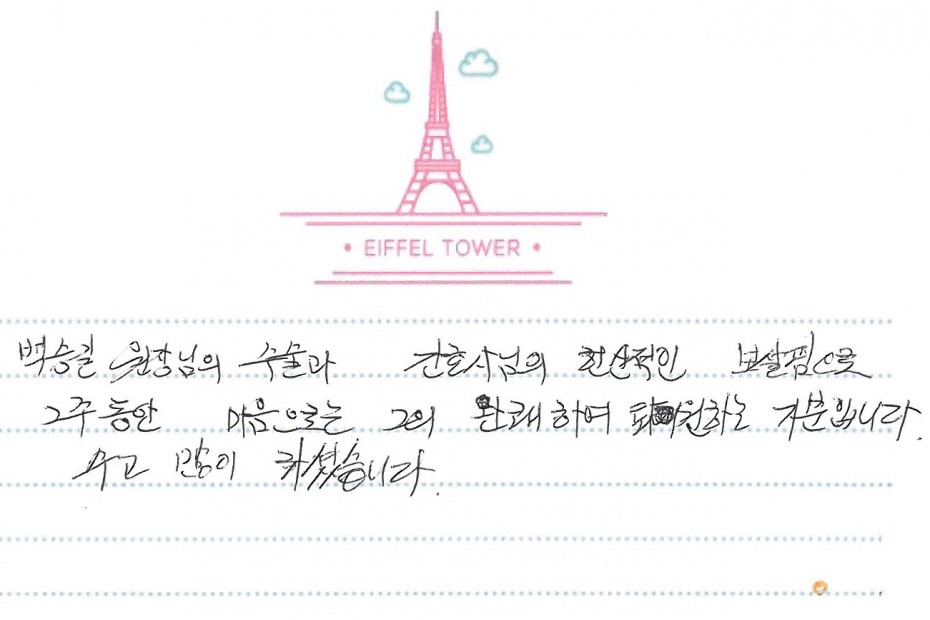 • EIFFEL TOWER •
백승길 원장님의 수술과 간호사님의 헌신적인 보살핌으로
2주 동안 마음으로는 거의 완쾌하며 퇴원하는 기분입니다.
수고 많이 하셨습니다.